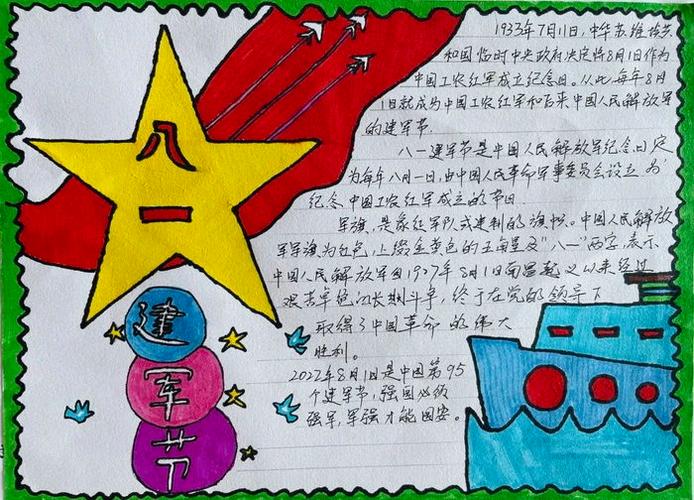 八
一
建
军
节
1933年7月11日,中华苏维埃共
和国临时中央政府决定将8月1日作为
中国工农红军成立纪念日。从此每年8月
1日就成为中国工农红军和后来中国人民解放军
的建军节.
八一建军节是中国人民解放军纪念日,定
为每年八月一日,由中国人民革命军事委员会设立,为
纪念中国工农红军成立的节日.
军旗,是象征军队或建制的旗帜。中国人民解放
军军旗为红色,上缀金黄色的五角星及"八一"两字,表示
中国人民解放军自1927年8月1日南昌起义以来经过
艰苦卓绝的长期斗争,终于在党的领导下
取得了中国革命的伟大
胜利。
2022年8月1日是中国第95
个建军节,强国必须
强军,军强才能国安。